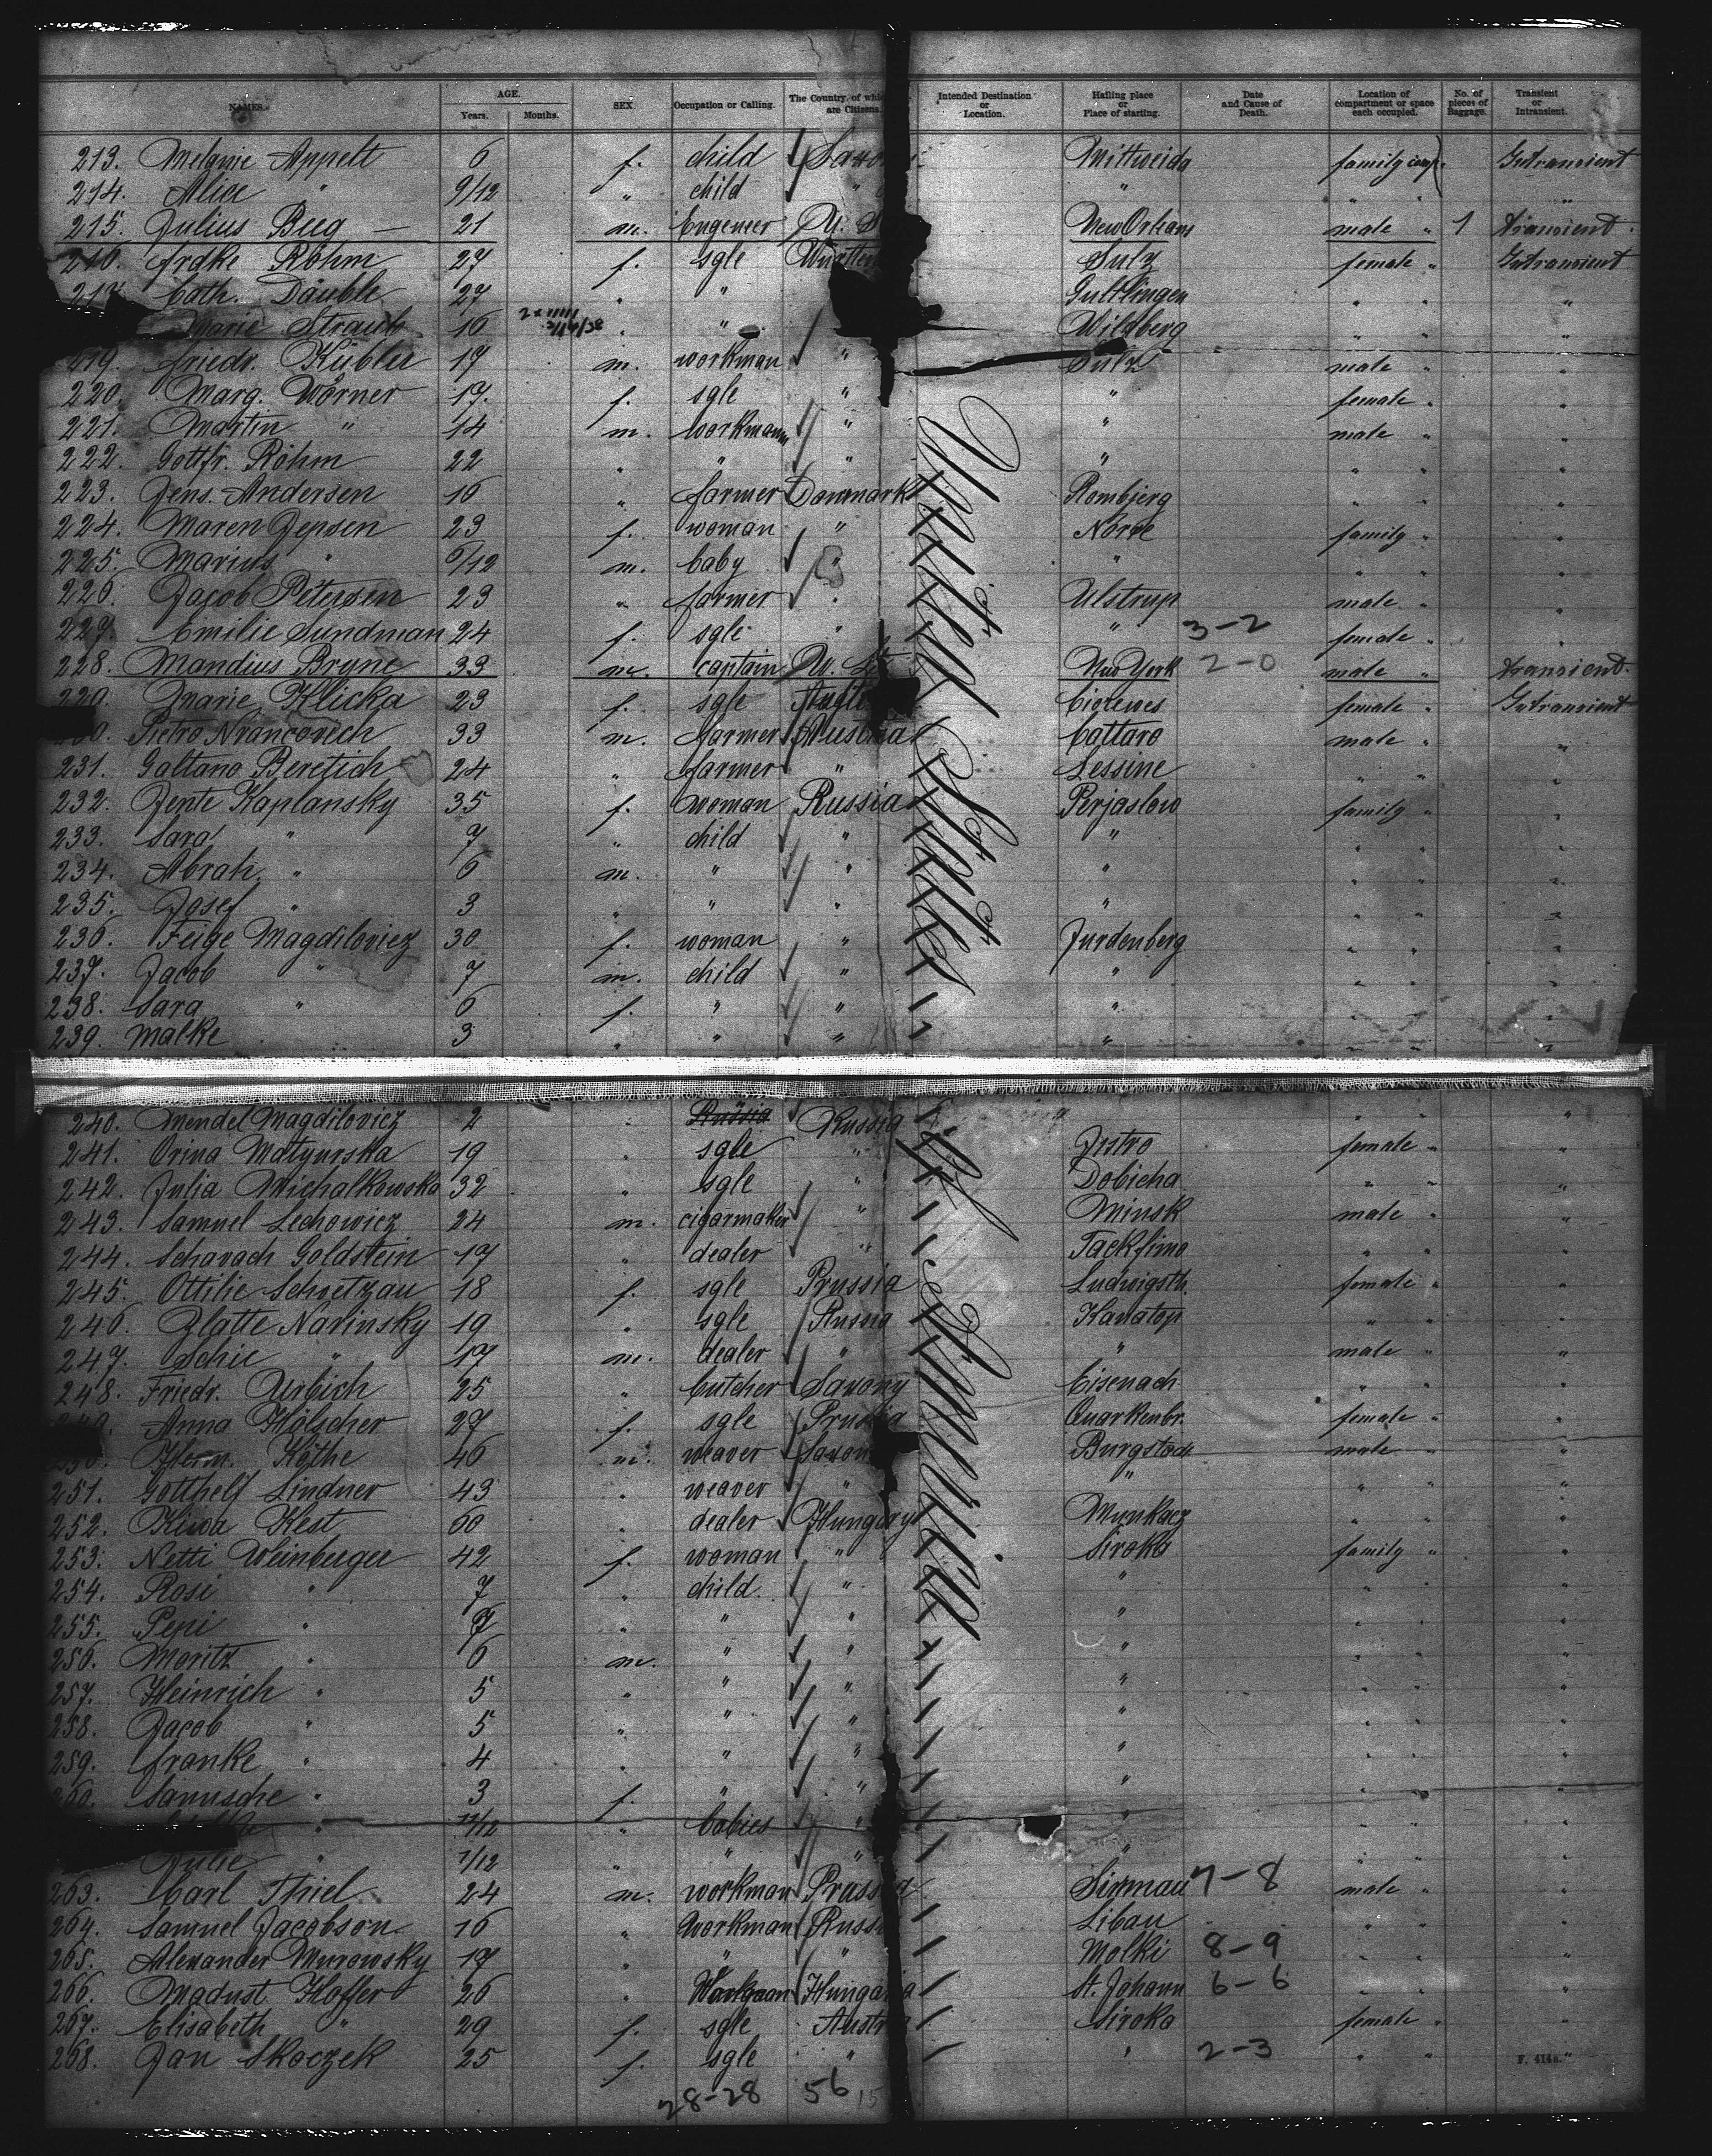 NAMES. AGE. Years. Months. SEX. Occupation or Calling. The Country of whi are Citizens. Intended Destination or Location. Hailing place or Place of starting. Date and Cause of Death. Location of compartment or space each occupied. No. of pieces of Baggage. Transient or Intransient.
213. Melanie Appelt 6 f. child Saxo Mittweida family comp. Intransient
214. Alice " 9/12 " child " " " " "
215. Julius Beeg — 21 m. Engeneer U. S New Orleans male " 1 transient.
216. Frdke Röhm 27 f. sgle Württem Sulz female " Intransient
217. Cath. Däuble 27 " " Gültlingen " " "
Marie Straub 16 " " " Wildberg " " "
219. Friedr. Kübler 17 m. workman " Sulz male " "
220. Marg. Wörner 17. f. sgle " " female " "
221. Martin " 14 m. workmann " " male " "
222. Gottfr. Röhm 22 " " " " " " "
223. Jens. Andersen 16 " farmer Danmark Rombjerg " " "
224. Maren Jepsen 23 f. woman " Norre family " "
225. Marius " 6/12 m. baby " " " " "
226. Jacob Petersen 23 " farmer " Ulstrup male " "
227. Emilie Sundman 24 f. sgle " " 3-2 female " "
228. Mandius Bryne 33 m. captain U. St New York 2-0 male " transient.
229. Marie Klicka 23 f. sgle Austr female " Intransient
230. Pietro Nrancovich 33 m. farmer Austria Cattaro male " "
231. Galtano Beretich 24 " farmer " Lessine " " "
232. Jente Kaplansky 35 f. woman Russia Perjaslow family " "
233. Sara " 7 " child " " " " "
234. Abrah. " 6 m. " " " " " "
235. Josef " 3 " " " " " " "
236. Feige Magdilovicz 30 f. woman " Jurdenberg " " "
237. Jacob " 7 m. child " " " " "
238. Sara " 6 f. " " " " " "
239. Malke 3 " " " " " " "
240. Mendel Magdilovicz 2 " Russia Russia " " "
241. Orina Matynrska 19 " sgle " Jistro female " "
242. Julia Michalkowska 32 " sgle " Dobicha " " "
243. Samuel Lechowicz 24 m. cigarmaker " Minsk male " "
244. Schavach Goldstein 19 " dealer " " " "
245. Ottilie Schoetzau 18 f. sgle Prussia Ludwigsth. female " "
246. Zlatte Narinsky 19 " sgle Russia Kanatop " " "
247. Schie " 19 m. dealer " " male " "
248. Friedr. Urbich 25 " butcher Saxony Eisenach " " "
249. Anna Hölscher 27 f. sgle Prussia Quarkenbr. female " "
250. Herm. Köthe 46 m. weaver Saxon Burgstadt male " "
251. Gotthelf Lindner 43 " weaver " " " " "
252. Kiwa Klest 60 " dealer Hungary Munkacz " " "
253. Netti Weinberger 42 f. woman " Siroka family " "
254. Rosi " 7 " child " " " " "
255. Pepi " 7 " " " " " " "
256. Moritz " 6 m. " " " " " "
257. Heinrich " 5 " " " " " " "
258. Jacob " 5 " " " " " " "
259. Franke " 4 " " " " " " "
260. Sanusche " 3 f. " " " " " "
" 11/12 " babies " " " " "
Julie " 1/12 " " " " " " "
263. Carl Thiel 24 m. workman Prussia Sirmau 7-8 male " "
264. Samuel Jacobson 16 " Workman Russi Libau " " "
265. Alexander Murowsky 17 " " " Molki 8-9 " " "
266. Madust Hoffer 26 " Workman Hungaria St. Johann 6-6 " " "
267. Elisabeth " 29 f. sgle Austr Siroka female " "
268. Jan Skoczek 25 f. sgle " " 2-3 " " "
F. 414a.
28-28 56 15
United States of America